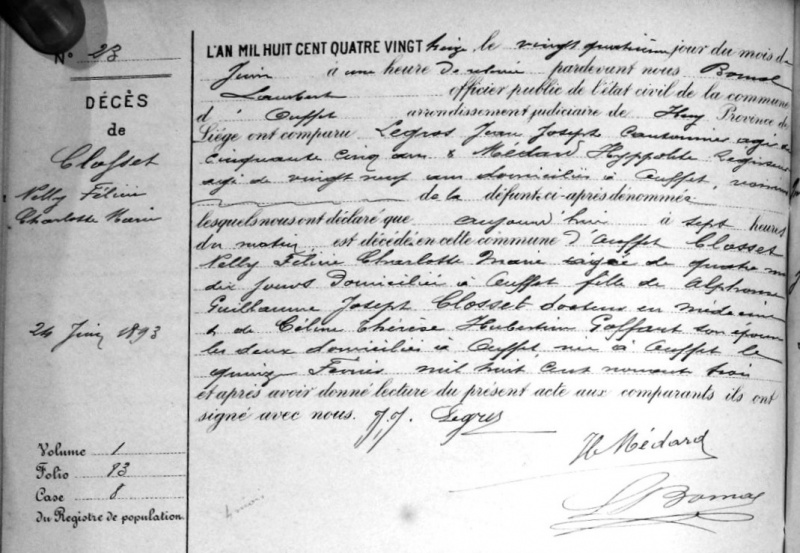 N° 23
DÉCÈS
de
Closset
Nelly Féline
Charlotte Marie
24 Juin 1893
Volume 1
Folio 83
Case 8
du Registre de population
L'AN MIL HUIT CENT QUATRE VINGT treize, le vingt quatrième jour du mois de
Juin à une heure de relevée pardevant nous Bomal
Lambert officier public de l'état civil de la commune
d'Ouffet arrondissement judiciaire de Huy Province de
Liége ont comparu Legros Jean Joseph Cantonnier agé de
cinquante cinq ans & Médard Hyppolite
agé de vingt neuf ans domiciliés à Ouffet, voisins
de la défunte ci-après dénommée
lesquels nous ont déclaré que aujourd'hui à sept heures
du matin est décédée en cette commune d'Ouffet Closset
Nelly Féline Charlotte Marie agée de quatre mois
dix jours Domiciliée à Ouffet fille de Alphonse
Guillaume Joseph Closset docteur en médecine
& de Céline Thérèse Hubertine Goffart son épouse
les deux domiciliés à Ouffet, née à Ouffet le
quinze Février mil huit cent nonante trois
et après avoir donné lecture du présent acte aux comparants ils ont
signé avec nous. J.J. Legros
H Médard
L Bomal